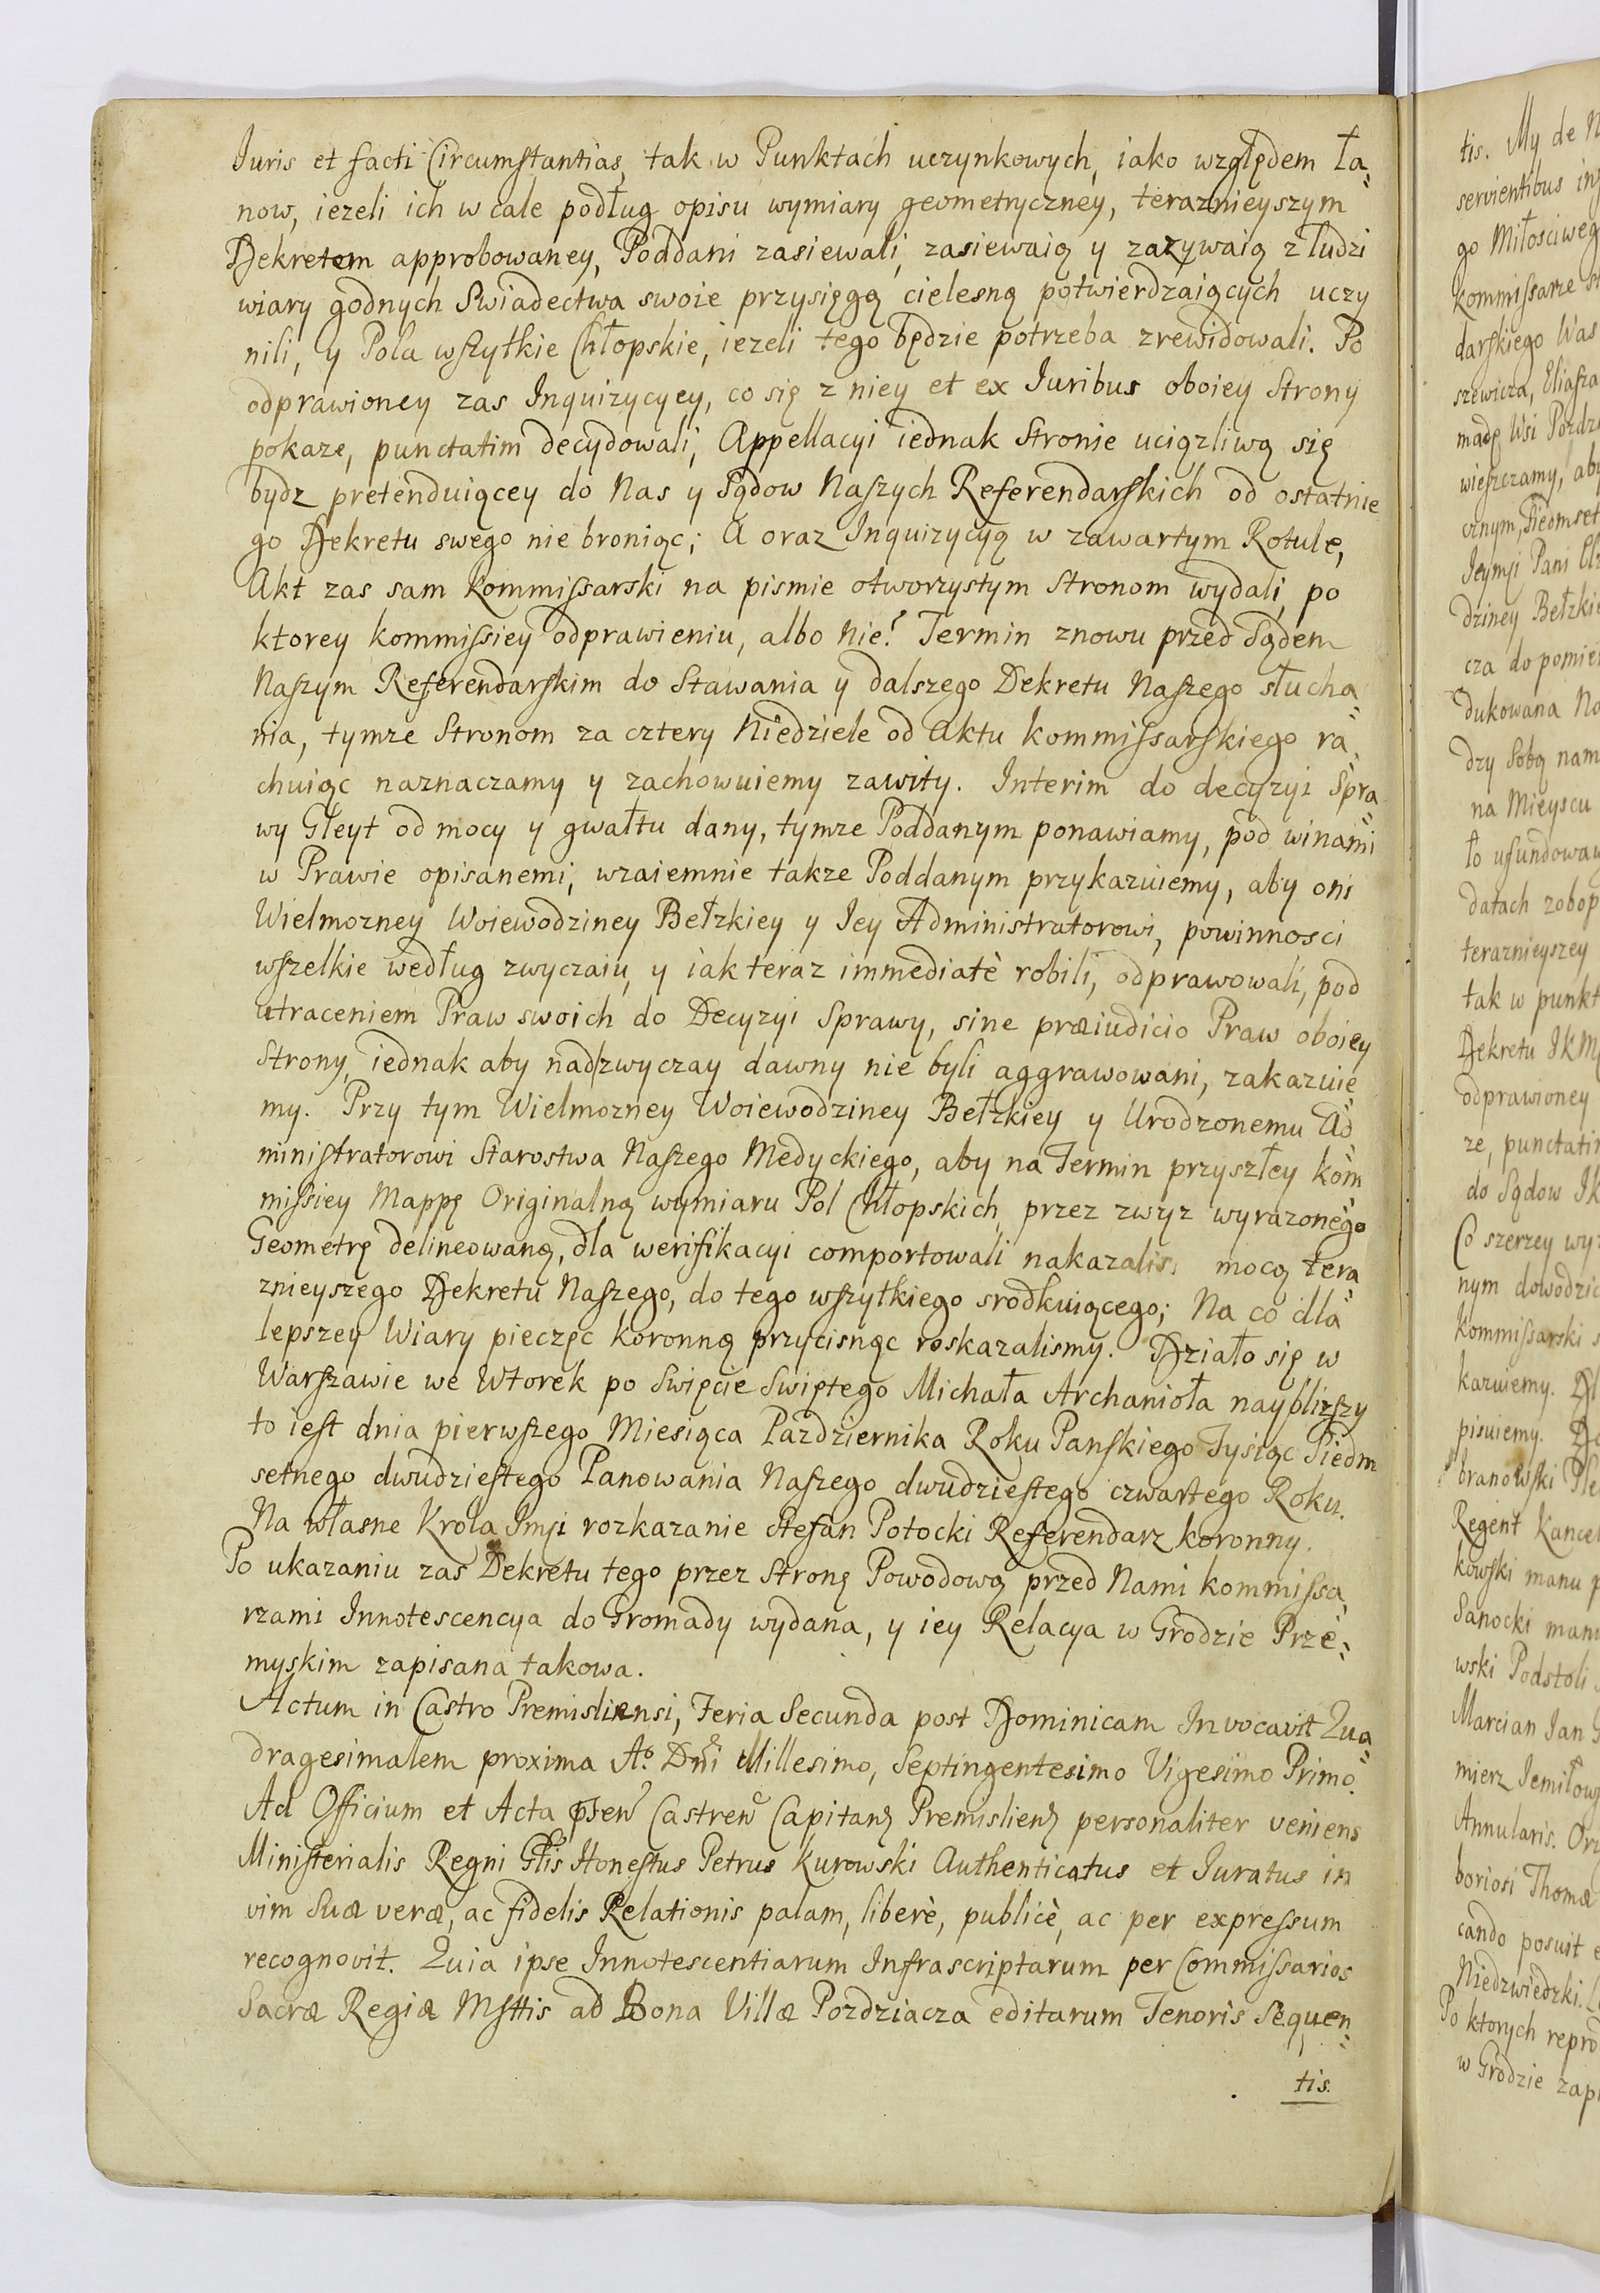 Iuris et facti Circumstantias, tak w Punktach uczynkowych, iako względem ła-
now, iezeli ich w cale podług opisu wymiary geometryczney, teraznieyszym
Dekretem approbowaney, Poddani zasiewali, zasiewaią y zazywaią z ludzi
wiary godnych Swiadectwa swoie przysięgą cielesną potwierdzaiących uczy
nili, y Pola wszytkie Chłopskie, iezeli tego będzie potrzeba zrewidowali. Po
odprawioney zas Inquizycyey, co się z niey et ex Iuribus oboiey Strony
pokaze, punctatim decydowali, Appellacyi iednak Stronie uciązliwą się
bydz pretenduiącey do Nas y Sądow Naszych Referendarskich od ostatnie
go Dekretu swego nie broniąc; A oraz Inquizycyą w zawartym Rotule,
Akt zas sam Kommissarski na pismie otworzystym Stronom wydali, po
ktorey kommissiey odprawieniu, albo nie! Termin znowu przed Sądem
Naszym Referendarskim do Stawania y dalszego Dekretu Naszego słucha-
nia, tymze Stronom za cztery Niedziele od Aktu kommissarskiego ra-
chuiąc naznaczamy y zachowuiemy zawity. Interim do decyzyi Spra-
wy Gleyt od mocy y gwałtu dany, tymze Poddanym ponawiamy, pod winami
w Prawie opisanemi, wzaiemnie takze Poddanym przykazuiemy, aby oni
Wielmozney Woiewodziney Bełzkiey y Iey Administratorowi, powinnosci
wszelkie według zwyczaiu, y iak teraz immediatè robili, odprawowali, pod
utraceniem Praw swoich do Decyzyi Sprawy, sine præiudicio Praw oboiey
Strony, iednak aby nad zwyczay dawny nie byli aggrawowani, zakazuie-
my. Przy tym Wielmozney Woiewodziney Bełzkiey y Urodzonemu Ad-
ministratorowi Starostwa Naszego Medyckiego, aby na Termin przyszłey kom-
missiey Mappę Originalną wymiaru Pol Chłopskich, przez zwyz wyrazonego
Geometrę delineowaną, dla werifikacyi comportowali nakazalis. mocą tera-
znieyszego Dekretu Naszego, do tego wszytkiego srodkuiącego; Na co dla
lepszey Wiary pieczęc koronną przycisnąc roskazalismy. Działo się w
Warszawie we Wtorek po Swięcie Swiętego Michała Archanioła naybliższy
to iest dnia pierwszego Miesiąca Pazdziernika Roku Panskiego Tysiąc Siedm
setnego dwudziestego Panowania Naszego dwudziestego czwartego Roku.
Na własne Krola Jmsi rozkazanie Stefan Potocki Referendarz koronny.
Po ukazaniu zas Dekretu tego przez Stronę Powodową przed Nami kommissa-
rzami Innotescencya do Gromady wydana, y iey Relacya w Grodzie Prze-
myskim zapisana takowa.
Actum in Castro Premisliensi, Feria Secunda post Dominicam Invocavit Qua-
dragesimalem proxima Ao. Dni Millesimo, Septingentesimo Vigesimo Primo.
Ad Officium et Acta psen Castren Capitan Premislien personaliter veniens
Ministerialis Regni Glis Honestus Petrus Kurowski Authenticatus et Iuratus in
vim Suæ veræ, ac fidelis Relationis palam, liberè, publicè, ac per expressum
recognovit. Quia ipse Innotescentiarum Infrascriptarum per Commissarios
Sacræ Regiæ Msttis ad Bona Villæ Pozdziacza editarum Tenoris Sequen-
tis.
tis. My de
servientibus
go Miłosciweg
kommissarze
darskiego Was
szewicza, Eliasza
madę Wsi Pozdz
wieszczamy, aby
cznym, Siedmset
Jeymsi Pani Elz
dziney Bełzkie
cza do pomie
dukowana Na
dzy Sobą nam
na Mieyscu
to ufundowa
datach zobop
teraznieyszey
tak w punkt
Dekretu JKM
odprawioney
ze, punctatim
do Sądow JK
Co szerzey wy
nym dowodzic
Kommissarski
kazuiemy.
pisuiemy.
branowski
Regent Kancel
kowski manu p
Sanocki manu
wski Podstoli
Marcian Jan
mierz Jemiłow
Annularis. Or
boriosi Thomæ
cando posuit
Niedzwiedzki.
Po ktorych repro
w Grodzie zapi